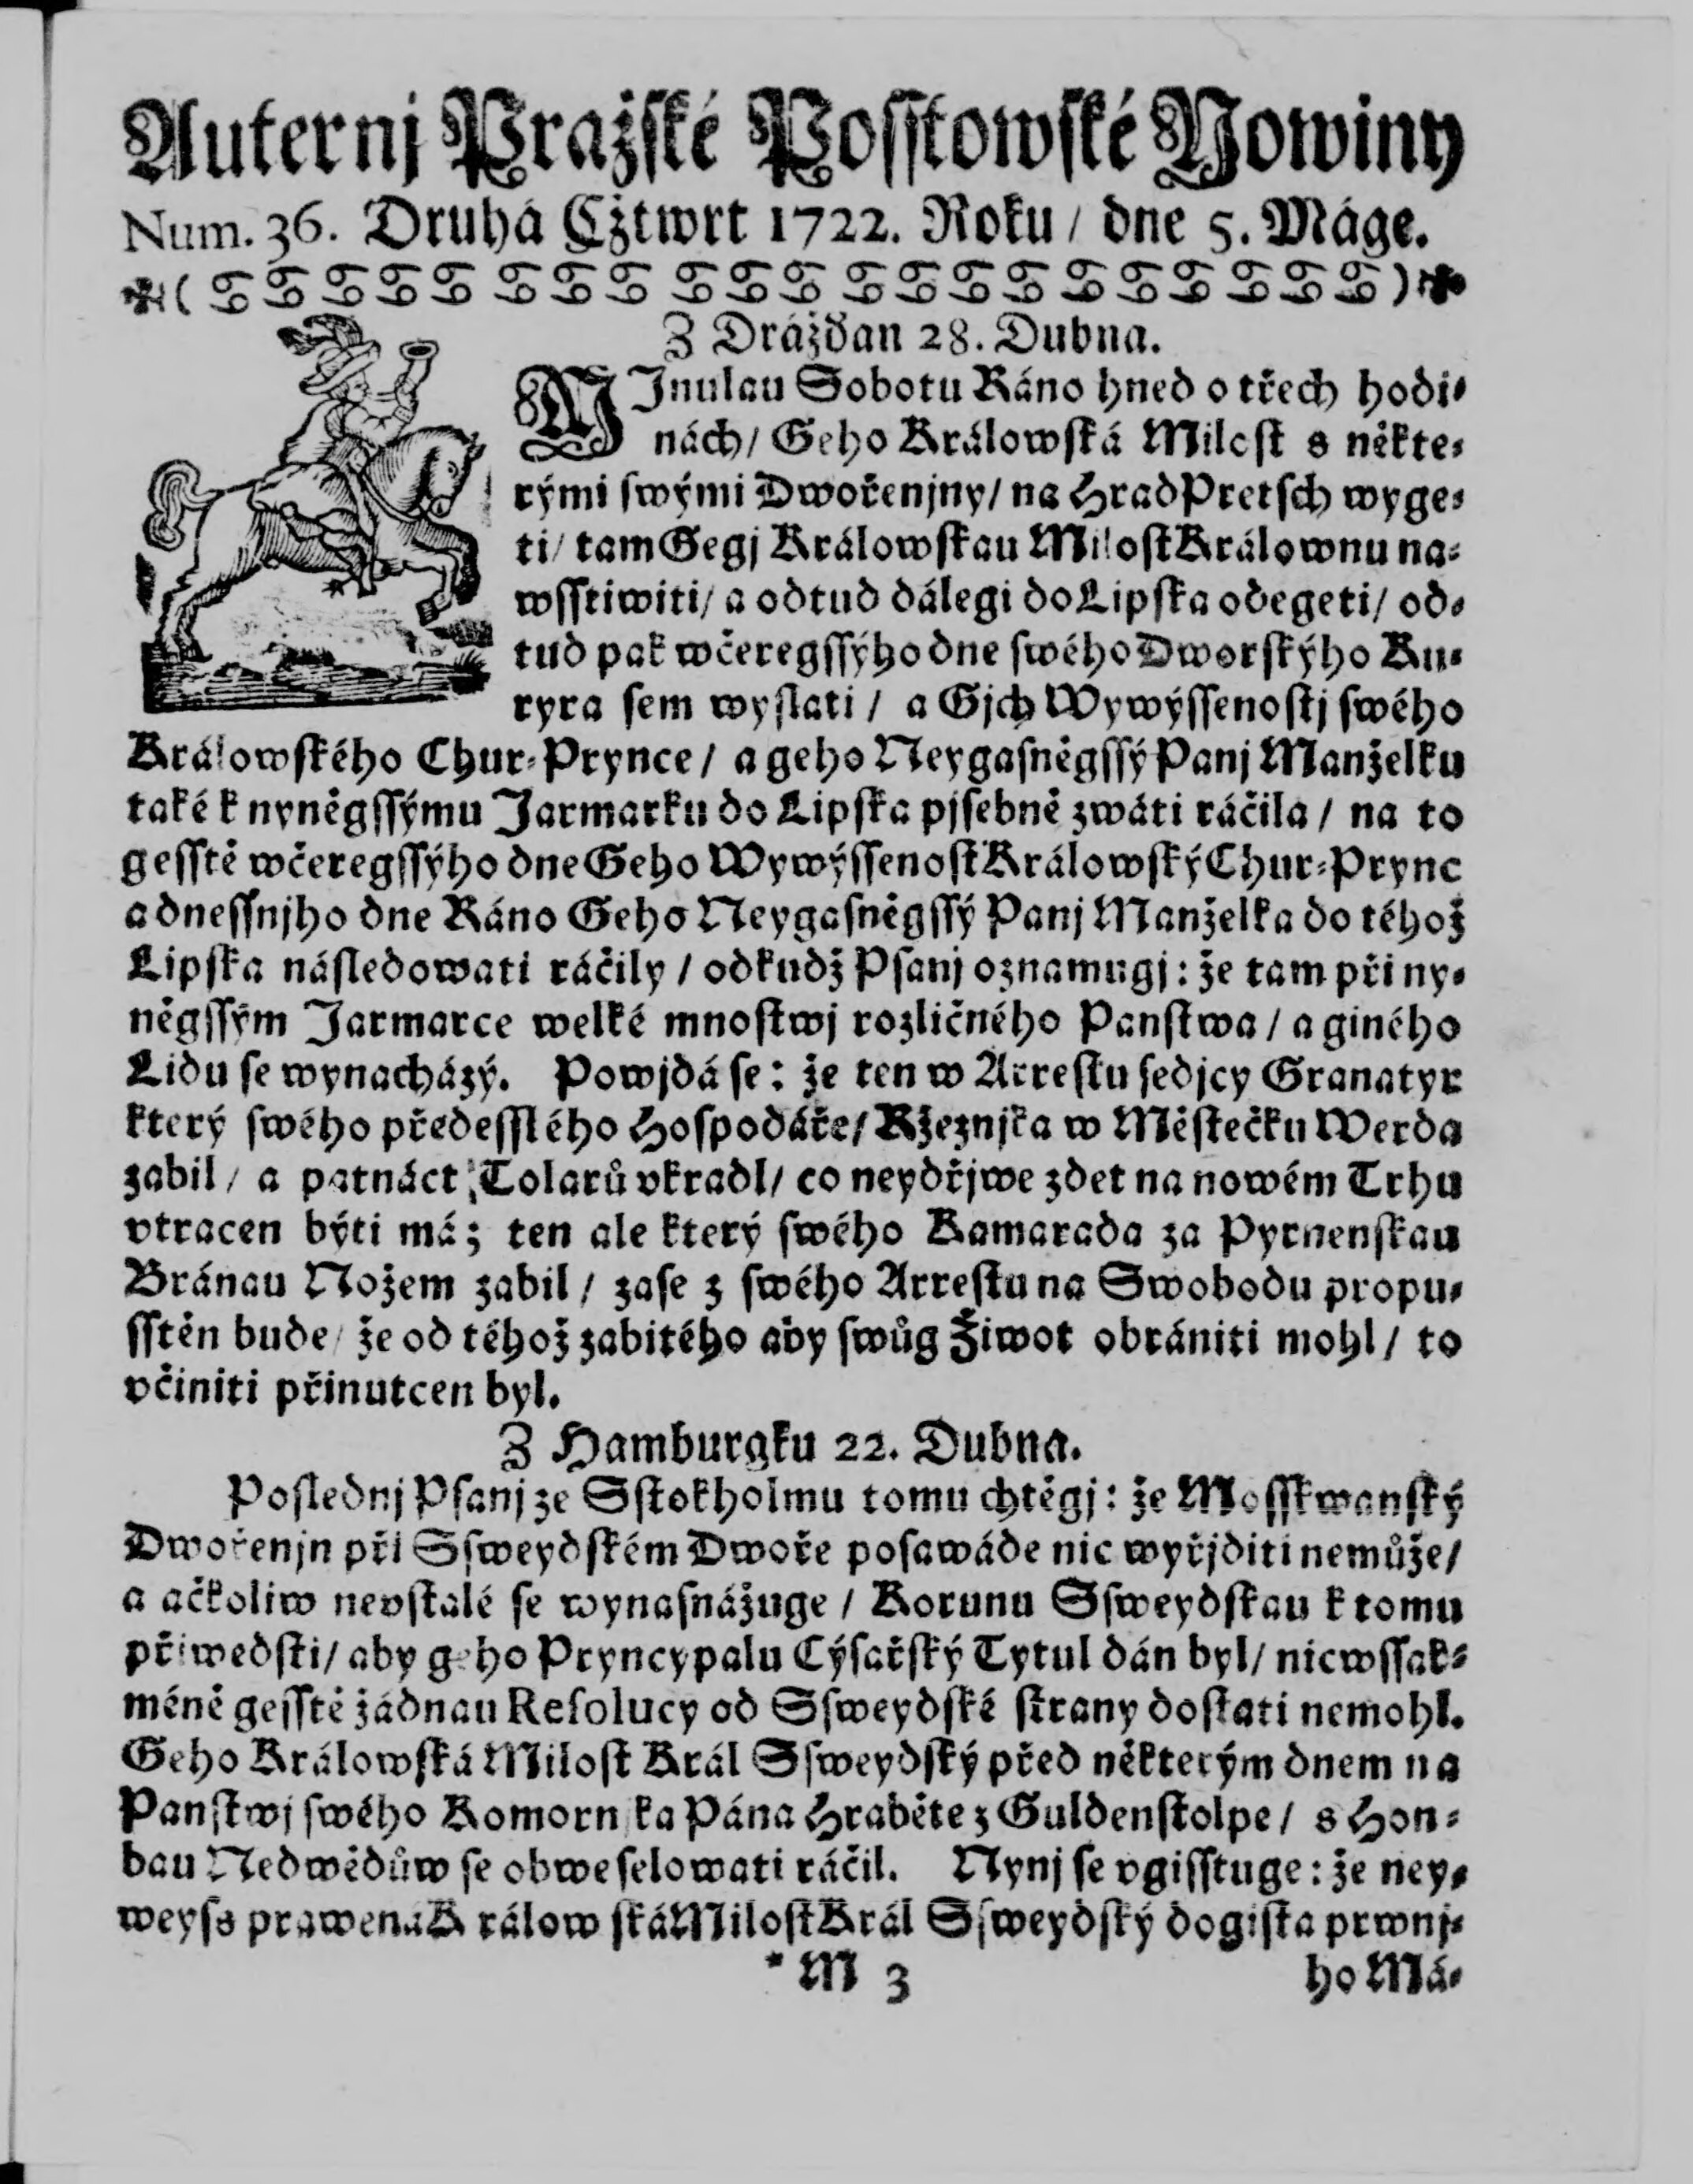 Auternj Pražſké Poſſtowſké Nowiny
Num. 36. Druhá Cžtwrt 1722. Roku / dne 5. Máge.
Z Drážďan 28. Dubna.
MJnulau Sobotu Ráno hned o třech hodi⸗
nách / Geho Králowſká Miloſt s někte⸗
rými ſwými Dwořenjny / na Hrad Pretſch wyge⸗
ti / tam Gegj Králowſkau Miloſt Králownu na⸗
wſſtiwiti / a odtud dálegi do Lipſka odegeti / od⸗
tud pak wčeregſſýho dne ſwého Dworſkýho Ku⸗
ryra ſem wyſlati / a Gjch Wywýſſenoſtj ſwého
Králowſkého Chur⸗Prynce / a geho Neygaſněgſſý Panj Manželku
také k nyněgſſýmu Jarmarku do Lipſka pjſebně zwáti ráčila / na to
geſſtě wčeregſſýho dne Geho Wywýſſenoſt Králowſký Chur⸗Prync
a dneſſnjho dne Ráno Geho Neygaſněgſſý Panj Manželka do téhož
Lipſka náſledowati ráčily / odkudž Pſanj oznamugj: že tam při ny⸗
něgſſým Jarmarce welké mnoſtwj rozličného Panſtwa / a giného
Lidu ſe wynacházý. Powjdá ſe: že ten w Arreſtu ſedjcy Granatyr
který ſwého předeſſlého Hoſpodáře / Ržeznjka w Měſtečku Werda
zabil / a patnáct Tolarů vkradl / co neydřjwe zdet na nowém Trhu
vtracen býti má; ten ale který ſwého Kamarada za Pyrnenſkau
Bránau Nožem zabil / zaſe z ſwého Arreſtu na Swobodu propu⸗
ſſtěn bude / že od téhož zabitého aby ſwůg Život obrániti mohl / to
včiniti přinutcen byl.
Z Hamburgku 22. Dubna.
Poſlednj Pſanj ze Sſtokholmu tomu chtěgj: že Moſſkwanſký
Dwořenjn při Sſweydſkém Dwoře poſawáde nic wyřjditi nemůže /
a ačkoliw nevſtalé ſe wynaſnážuge / Korunu Sſweydſkau k tomu
přiwedſti / aby geho Pryncypalu Cýſařſký Tytul dán byl / nicwſſak⸗
méně geſſtě žádnau Reſolucy od Sſweydſké ſtrany doſtati nemohl.
Geho Králowſká Miloſt Král Sſweydſký před některým dnem na
Panſtwj ſwého Komornjka Pána Hraběte z Guldenſtolpe / s Hon⸗
bau Nedwědůw ſe obweſelowati ráčil. Nynj ſe vgiſſtuge: že ney⸗
weyſs prawená Králowſká Miloſt Král Sſweydſký dogiſta prwnj⸗
* M 3 ho Má⸗